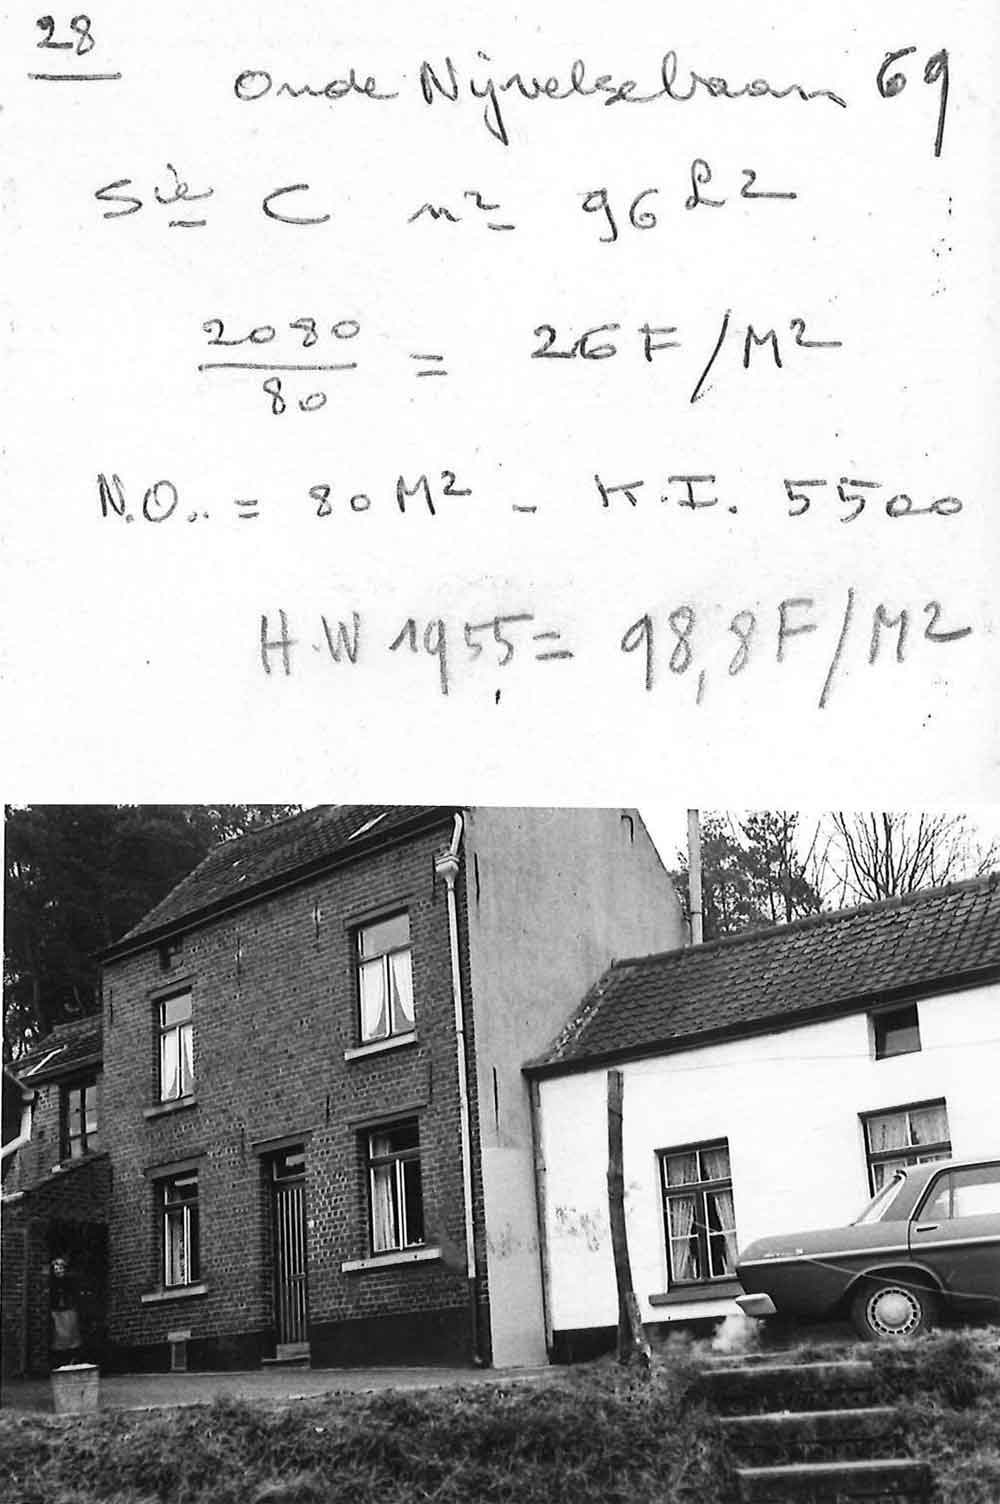 28
Oude Nijvelsebaan 69
Sie C nr 96 L2
2080
80
= 26 F/M2
N.O.. = 80 M2 - K.I. 5500
H.W 1955 = 98,8 F/M2